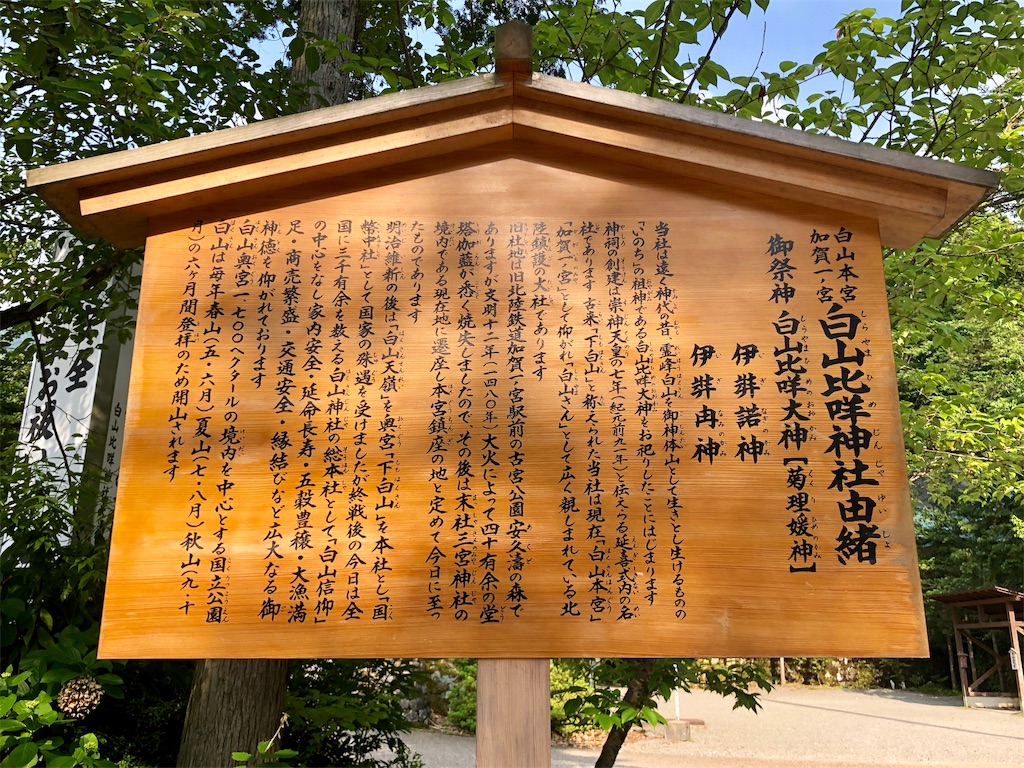 白山本宮
加賀一ノ宮
白山比咩神社由緒
御祭神 白山比咩大神【菊理媛神】
伊弉諾神
伊弉冉神
当社は遠く神代の昔 霊峰白山を御神体山として生きとし生けるものの
「いのち」の祖神である白山比咩大神をお祀りしたことにはじまります
神祠の創建は崇神天皇の七年(紀元前九一年)と伝えらる延喜式内の名
社であります 古来「下白山」と称えられた当社は現在「白山本宮」
「加賀一ノ宮」として仰がれ「白山さん」として広く親しまれている北
陸鎮護の大社であります
旧社地は旧北陸鉄道加賀一ノ宮駅前の古宮公園 安久濤の森で
ありますが文明十二年(一四八〇年)大火によって四十有余の堂
塔伽藍が悉く焼失しましたので、その後は末社三宮神社の
境内である現在地に遷座し本宮鎮座の地と定めて今日に至っ
たものであります
明治維新の後は「白山天嶺」を奥宮「下白山」を本社とし「国
幣中社」として国家の殊遇を受けましたが終戦後の今日は全
国に三千有余を数える白山神社の総本社として「白山信仰」
の中心をなし家内安全・延命長寿・五穀豊穣・大漁満
足・商売繁盛・交通安全・縁結びなど広大なる御
神徳を仰がれております
白山奥宮一七〇〇ヘクタールの境内を中心とする国立公園
白山は毎年春山(五・六月)夏山(七・八月)秋山(九・十
月)の六ヶ月間登拝のため開山されます
全
お祓
白山比咩神社